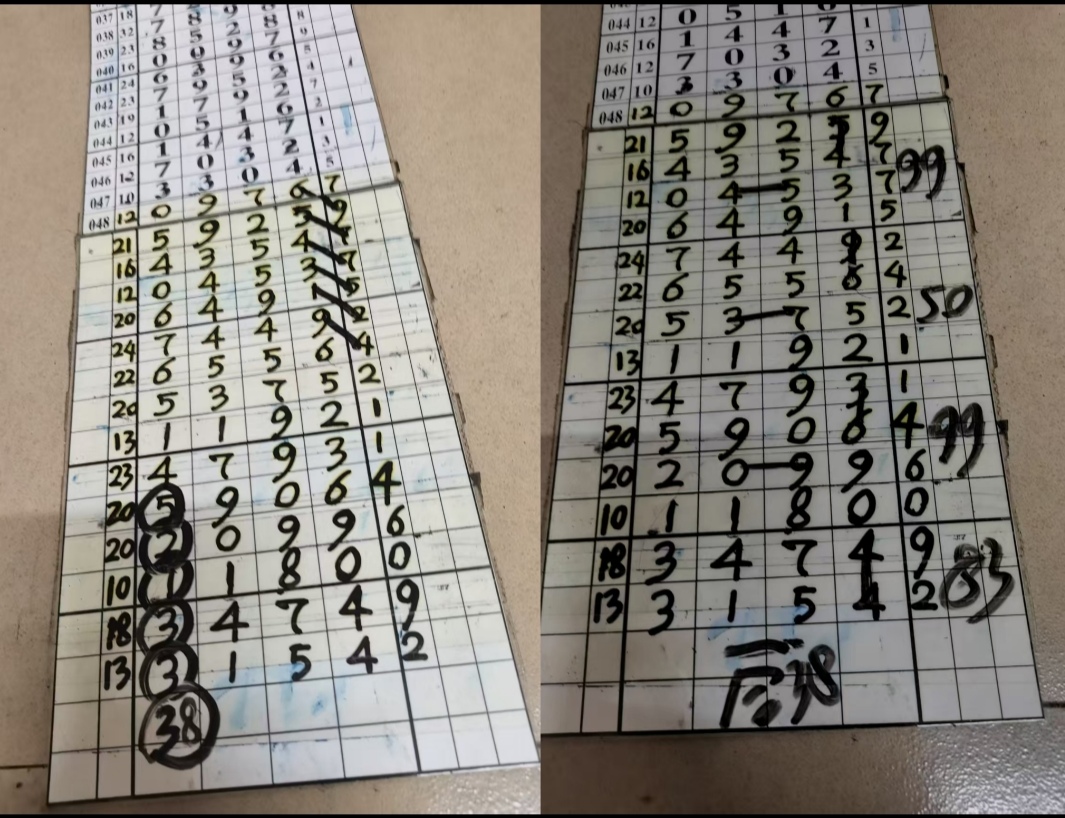 037 18
038 32 7 8 9 8
039 23 8 5 2 8 8
040 16 0 0 9 7 9
041 24 6 3 9 6 5
042 23 7 9 5 2 4
043 19 1 7 9 2 7
044 12 0 5 1 6 2
045 16 1 4 4 7 1
046 12 7 0 3 2 3
047 10 3 3 0 4 5
048 12 0 9 7 6 7
21 5 9 2 5 9
16 4 3 5 4 7
12 0 4 5 3 7
20 6 4 9 1 5
24 7 4 4 9 2
22 6 5 5 6 4
20 5 3 7 5 2
13 1 1 9 2 1
23 4 7 9 3 1
20 5 9 0 6 4
20 2 0 9 9 6
10 1 1 8 0 0
18 3 4 7 4 9
13 3 1 5 4 2
38
044 12 0 5 1 6
045 16 1 4 4 7 1
046 12 7 0 3 2 3
047 10 3 3 0 4 5
048 12 0 9 7 6 7
21 5 9 2 5 9
16 4 3 5 4 7 99
12 0 4 5 3 7
20 6 4 9 1 5
24 7 4 4 9 2
22 6 5 5 6 4
20 5 3 7 5 2 50
13 1 1 9 2 1
23 4 7 9 3 1
20 5 9 0 6 4 99
20 2 0 9 9 6
10 1 1 8 0 0
18 3 4 7 4 9 83
13 3 1 5 4 2
38